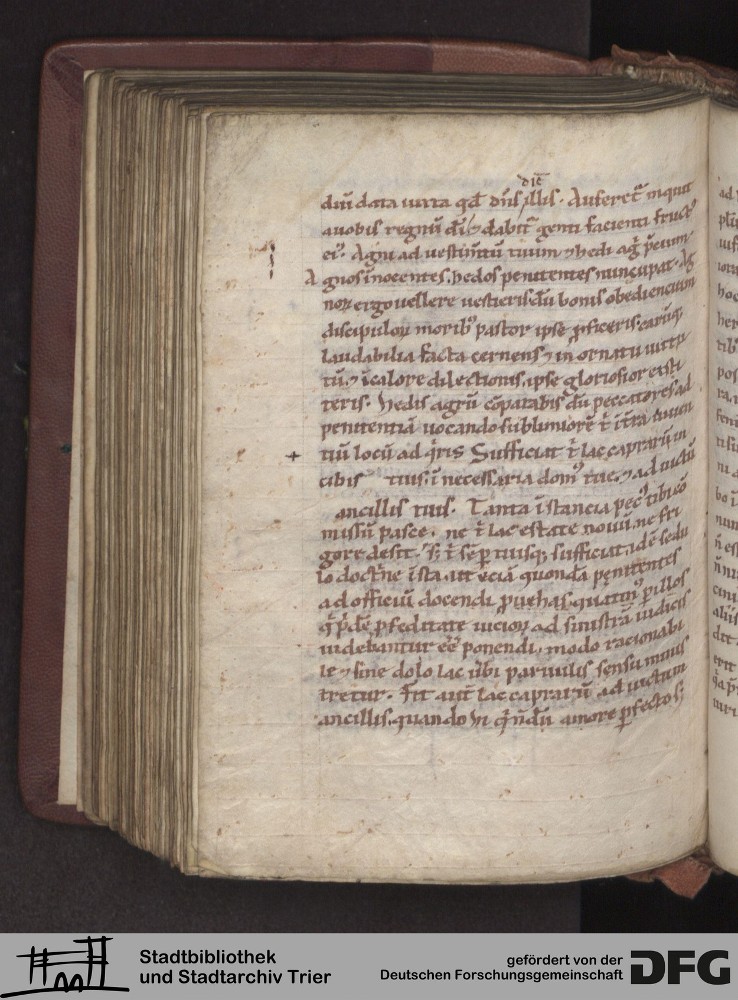 dicē
diū data iuxta qđ dñs illis. Auferet᷑ inquit
auobis regnū dī ⁊ dabit᷑ genti facienti fruct᷒
ei᷒. Agni ad vestimtū tuum ⁊ hedi ag̃ p̄cium.
Agnos inocentes. hedos penitentes nuncupat. Ag
noꝝ ergo vellere vestieris. dū bonis obedientium
discipuloꝝ morib᷒ pastor ipse ꝓficeris. earūq;
laudabilia facta cernens ⁊ in ornatu uirtu
tū. ⁊ ī calore dilectionis. ipse gloriosior existi
teris. Hedis agrū cōparabis. dū peccatores ad
penitentiā uocando sublimiorē t̄ īt̄rā uiuen
tiū locū ad q̄ris Sufficiat t̄ lac caprarū in
cibis tuis. ī necessaria dom᷒ tue. ⁊ ad uictū
ancillis tuis. Tanta īstancia pec᷒ tibi cō
missū pasce. ne t̄ lac estate nouū. ne fri
gore desit. S; t̄ sēp tuisq; sufficiat. adē sedu
lo doctrīne īsta. ut eciā quondā penitentes
ad officiū docendi ꝓuehas. quatin᷒ ꝑ illos
q̄ p̄dē p̄ feditate uicioꝝ ad sinistrā iudicis
uidebantur eē ponendi. modo racionabi
le ⁊ sine dolo lac ūbi paruulis sensu minis
tretur. Fit aut̄ lac caprarū ad uictum
ancillis. quando hi q̄ n̄dū amore ꝑfecto s;
Stadtbibliothek
und Stadtarchiv Trier
gefördert von der
Deutschen Forschungsgemeinschaft
DFG